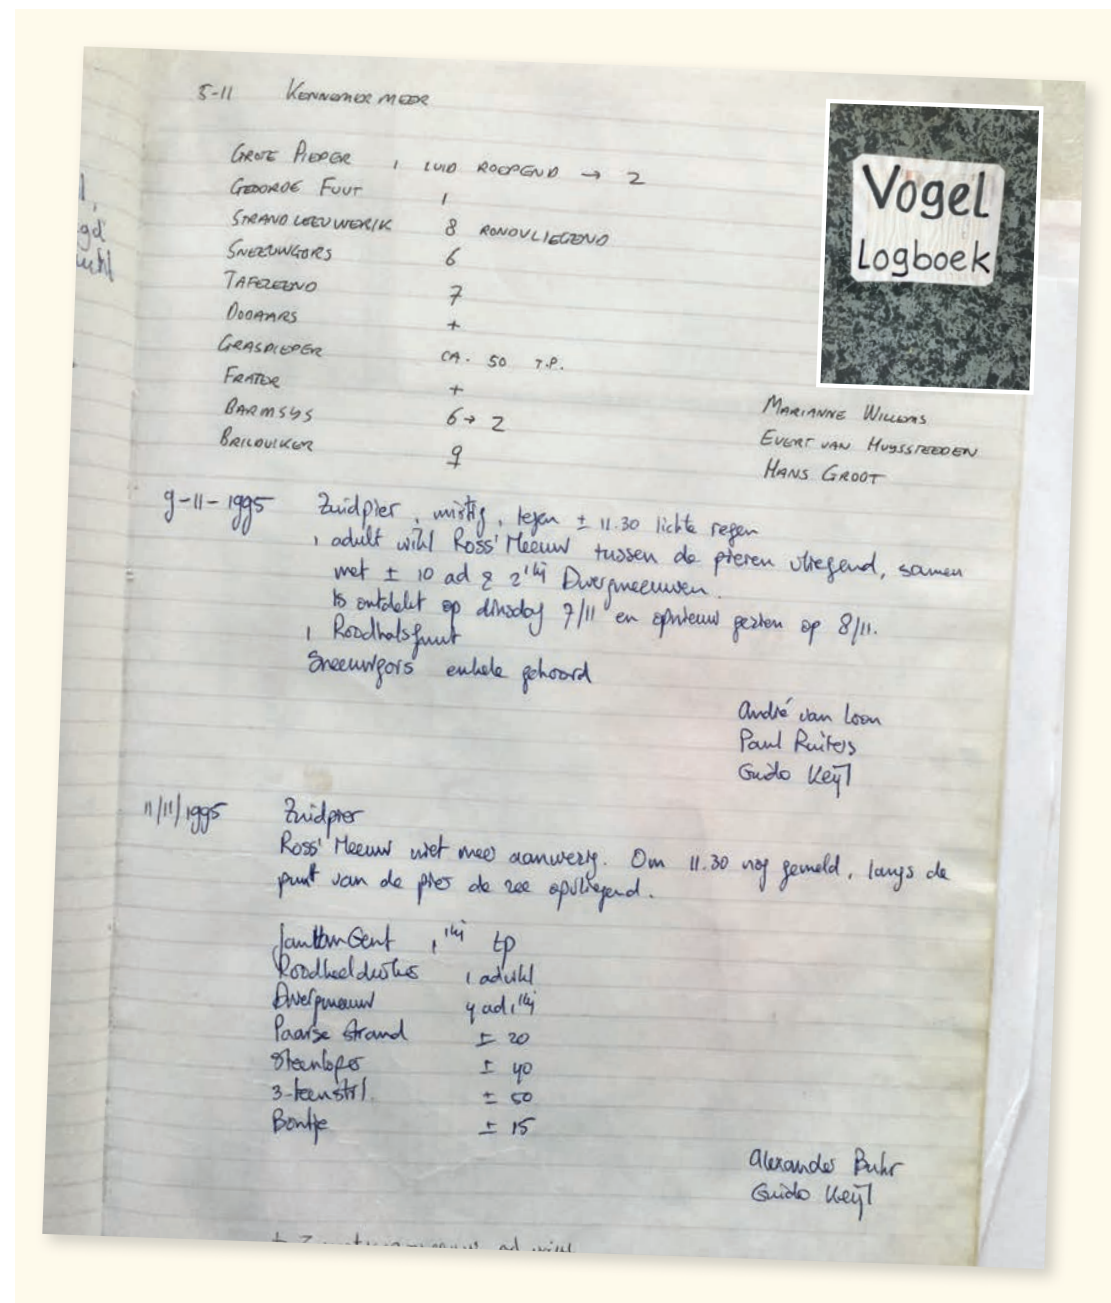 5-11 KENNEMERMEER
GROTE PIEPER 1 LUID ROEPEND → Z
GEOORDE FUUT 1
STRANDLEEUWERIK 8 RONDVLIEGEND
SNEEUWGORS 6
TAFELEEND 7
DODAARS +
GRASPIEPER CA. 50 T.P.
FRATER +
BARMSYS 6 → Z
BRILDUIKER 9
MARIANNE WILLEMS
EVERT VAN HUYSSTEEDEN
HANS GROOT
Vogel
Logboek
9-11-1995 Zuidpier, mistig, tegen ± 11.30 lichte regen
1 adult wikl Ross' Meeuw tussen de pieren vliegend, samen
met ± 10 ad & 2 1kj Dwergmeeuwen.
Is ontdekt op dinsdag 7/11 en opnieuw gezien op 8/11.
1 Roodhalsfuut
Sneeuwgors enkele gehoord
André van Loon
Paul Ruiters
Guido Keijl
11/11/1995 Zuidpier
Ross' Meeuw niet meer aanwezig. Om 11.30 nog gemeld, langs de
punt van de pier de zee opvliegend.
Jan van Gent 1 1kj tp
Roodkeelduiker 1 ad wikl
Dwergmeeuw 4 ad, 1kj
Paarse strand ± 20
Steenloper ± 40
3-teenstrl. ± 50
Bontje ± 15
Alexander Buhr
Guido Keijl